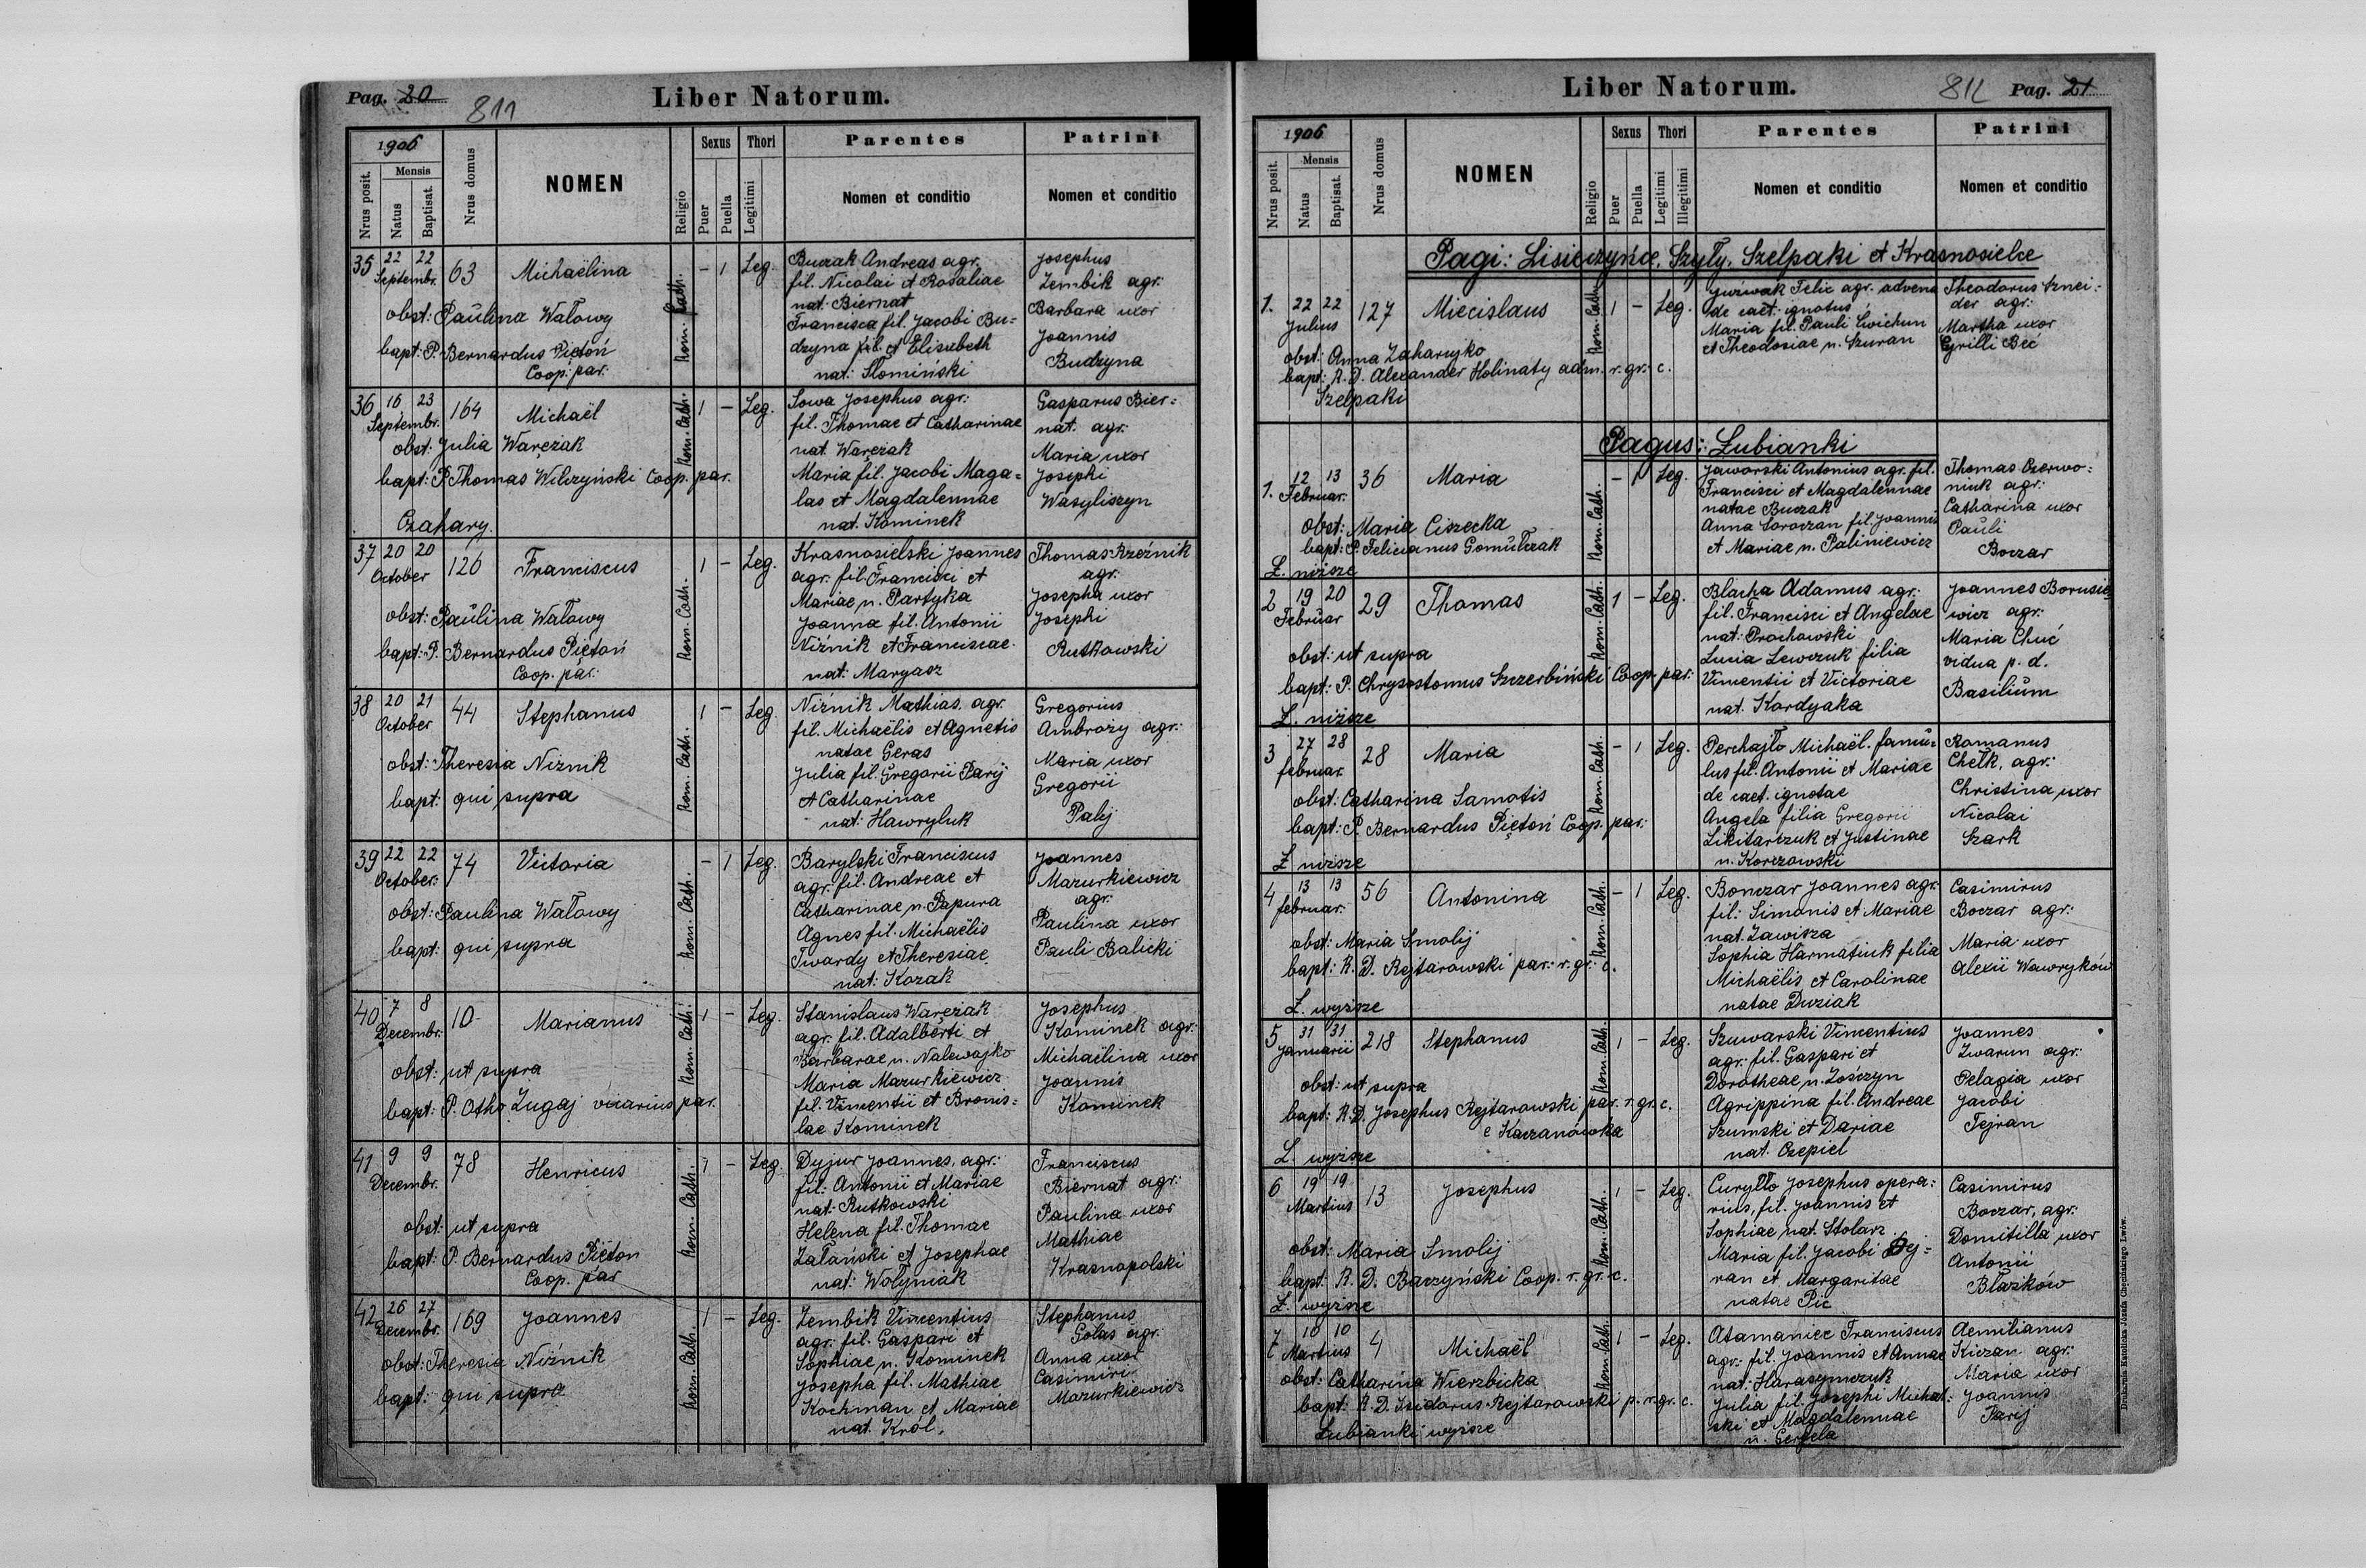 Pag. 20
811
Liber Natorum.
1906
Nrus posit.
Mensis
Natus
Baptisat.
Nrus domus
NOMEN
Religio
Sexus
Puer
Puella
Thori
Legitimi
Parentes
Nomen et conditio
Patrini
Nomen et conditio
35 22 22 Septembr. 63 Michaëlina Rom. Cath. - 1 Leg.
obst: Paulina Watowy
bapt: P. Bernardus Piętoń
Coop. par.
Buczak Andreas agr.
fil. Nicolai et Rosaliae
nat. Biernat
Francisca fil. Jacobi Bu=
dzyna fil. et Elisabeth
nat: Słomiński
Josephus
Zembik agr:
Barbara uxor
Joannis
Budzyna
36 16 23 Septembr. 164 Michaël Rom. Cath. 1 - Leg.
obst: Julia Waręzak
bapt: P. Thomas Wilczyński Coop. par.
Czahary.
Sowa Josephus agr:
fil. Thomae et Catharinae
nat. Waręzak
Maria fil. Jacobi Maga=
las et Magdalennae
nat. Kominek
Gasparus Bier=
nat. agr:
Maria uxor
Josephi
Wasyliszyn
37 20 20 October 126 Franciscus Rom. Cath. 1 - Leg.
obst: Paulina Watowy
bapt: P. Bernardus Piętoń
Coop. par.
Krasnosielski Joannes
agr. fil. Francisci et
Mariae n. Partyka
Joanna fil. Antonii
Niźnik et Franciscae
nat. Margasz
Thomas Rzeźnik
agr:
Josepha uxor
Josephi
Rutkowski
38 20 21 October 44 Stephanus Rom. Cath. 1 - Leg.
obst: Theresia Niznik
bapt: qui supra
Niźnik Mathias. agr.
fil. Michaëlis et Agnetis
natae Geras
Julia fil. Gregorii Parij
et Catharinae
nat: Hawryluk
Gregorius
Ambroży agr:
Maria uxor
Gregorii
Palij
39 22 22 October: 74 Victoria Rom. Cath. - 1 Leg.
obst: Paulina Watowy
bapt: qui supra
Barylski Franciscus
agr. fil. Andreae et
Catharinae n. Papura
Agnes fil. Michaëlis
Twardy et Theresiae
nat: Kozak
Joannes
Mazurkiewicz
agr:
Paulina uxor
Pauli Balicki
40 7 8 Decembr. 10 Marianus Rom. Cath. 1 - Leg.
obst: ut supra
bapt: P. Otho Zugaj vicarius par.
Stanislaus Waręzak
agr. fil. Adalberti et
Barbarae n. Nalewajko
Maria Mazurkiewicz
fil. Vincentii et Bronis=
lae Kominek
Josephus
Kominek agr:
Michaëlina uxor
Joannis
Kominek
41 9 9 Decembr. 78 Henricus Rom. Cath. 1 - Leg.
obst: ut supra
bapt: P. Bernardus Piętoń
Coop. par
Dyjur Joannes, agr:
fil: Antonii et Mariae
nat: Rutkowski
Helena fil. Thomae
Załański et Josephae
nat: Wolyniak
Franciscus
Biernat agr:
Paulina uxor
Mathiae
Krasnopolski
42 26 27 Decembr. 169 Joannes Rom. Cath. 1 - Leg.
obst: Theresia Niźnik
bapt: qui supra
Zembik Vincentius
agr: fil. Gaspari et
Sophiae n. Kominek
Josepha fil. Mathiae
Kochman et Mariae
nat. Król.
Stephanus
Golas agr:
Anna uxor
Casimiri
Mazurkiewicz
Liber Natorum.
Pag. 21
1906
Nrus posit.
Mensis
Natus
Baptisat.
Nrus domus
NOMEN
Religio
Sexus
Puer
Puella
Thori
Legitimi
Illegitimi
Parentes
Nomen et conditio
Patrini
Nomen et conditio
Pagi: Lisieczyńce, Szyły, Szelpaki et Krasnosielce
1. 22 22 Julius 127 Miecislaus Rom. Cath. 1 - Leg.
obst: Anna Zaharujko
bapt: R. D. Alexander Holinaty adm. r. gr. c.
Szelpaki
Juźwak Felic agr. advena
de caet. ignotus
Maria fil. Pauli Cwichun
et Theodosiae n. Szuran
Theodorus Sznei=
der agr:
Martha uxor
Cyrilli Bec
Pagus: Lubianki
1. 12 13 Februar. 36 Maria Rom. Cath. - 1 Leg.
obst: Maria Ciszecka
bapt: P. Felicianus Gomułczak
Ł. niższe
Jaworski Antonius agr. fil.
Francisci et Magdalennae
natae Buczak
Anna Soroczan fil. Joannis
et Mariae n. Paliniewicz
Thomas Czerwo=
niuk agr:
Catharina uxor
Pauli
Boczar
2 19 20 Februar 29 Thomas Rom. Cath. 1 - Leg.
obst: ut supra
bapt: P. Chrysostomus Szczerbiński Coop. par:
Ł. niższe
Blacha Adamus agr:
fil. Francisci et Angelae
nat: Prochowski
Lucia Lewczuk filia
Vincentii et Victoriae
nat. Kordyaka
Joannes Borusie
wicz agr:
Maria Chuć
vidua p. d.
Basilium
3 27 28 februar. 28 Maria Rom. Cath. - 1 Leg.
obst: Catharina Samotis
bapt: P. Bernardus Piętoń Coop. par:
Ł niższe
Perchajło Michaël. famu=
lus fil. Antonii et Mariae
de caet. ignotae
Angela filia Gregorii
Likitarczuk et Justinae
n. Korczowski
Romanus
Chełk, agr:
Christina uxor
Nicolai
Szark
4 13 13 februar. 56 Antonina Rom. Cath. - 1 Leg.
obst: Maria Smolij
bapt: R. D. Rejtarowski par: r. gr: c.
Ł. wyższe
Bonczar Joannes agr.
fil: Simonis et Mariae
nat. Zawisza
Sophia Harmatiuk filia
Michaëlis et Carolinae
natae Duziak
Casimirus
Boczar agr:
Maria uxor
Alexii Wawryków
5 31 31 Januarii 218 Stephanus Rom. Cath. 1 - Leg.
obst: ut supra
bapt: R. D. Josephus Rejtarowski par. r. gr. c.
e Kaczanówka
Ł. wyższe
Szuwarski Vincentius
agr: fil. Gaspari et
Dorotheae n. Łoszczyn
Agrippina fil. Andreae
Szumski et Dariae
nat. Czepiel
Joannes
Zwarun agr:
Pelagia uxor
Jacobi
Tejran
6 19 19 Martius 13 Josephus Rom. Cath. 1 - Leg.
obst: Maria Smolij
bapt. R. D. Baczyński Coop. r. gr. c.
Ł. wyższe
Curyłło Josephus opera=
rius, fil. Joannis et
Sophiae nat. Stolarz
Maria fil. Jacobi Dej=
ran et Margaritae
natae Pic
Casimirus
Boczar, agr:
Domitilla uxor
Antonii
Błażków
7 10 10 Martius 4 Michaël Rom. Cath. 1 - Leg.
obst: Catharina Wierzbicka
bapt: R. D. Isidorus Rejtarowski p. r. gr. c.
Lubianki wyższe
Atamaniec Franciscus
agr: fil. Joannis et Annae
nat: Harasymczuk
Julia fil. Josephi Michal=
ski et Magdalennae
n. Gergela
Aemilianus
Kiczan agr:
Maria uxor
Joannis
Parij
Drukarnia Katolicka Józefa Chęcińskiego Lwów.